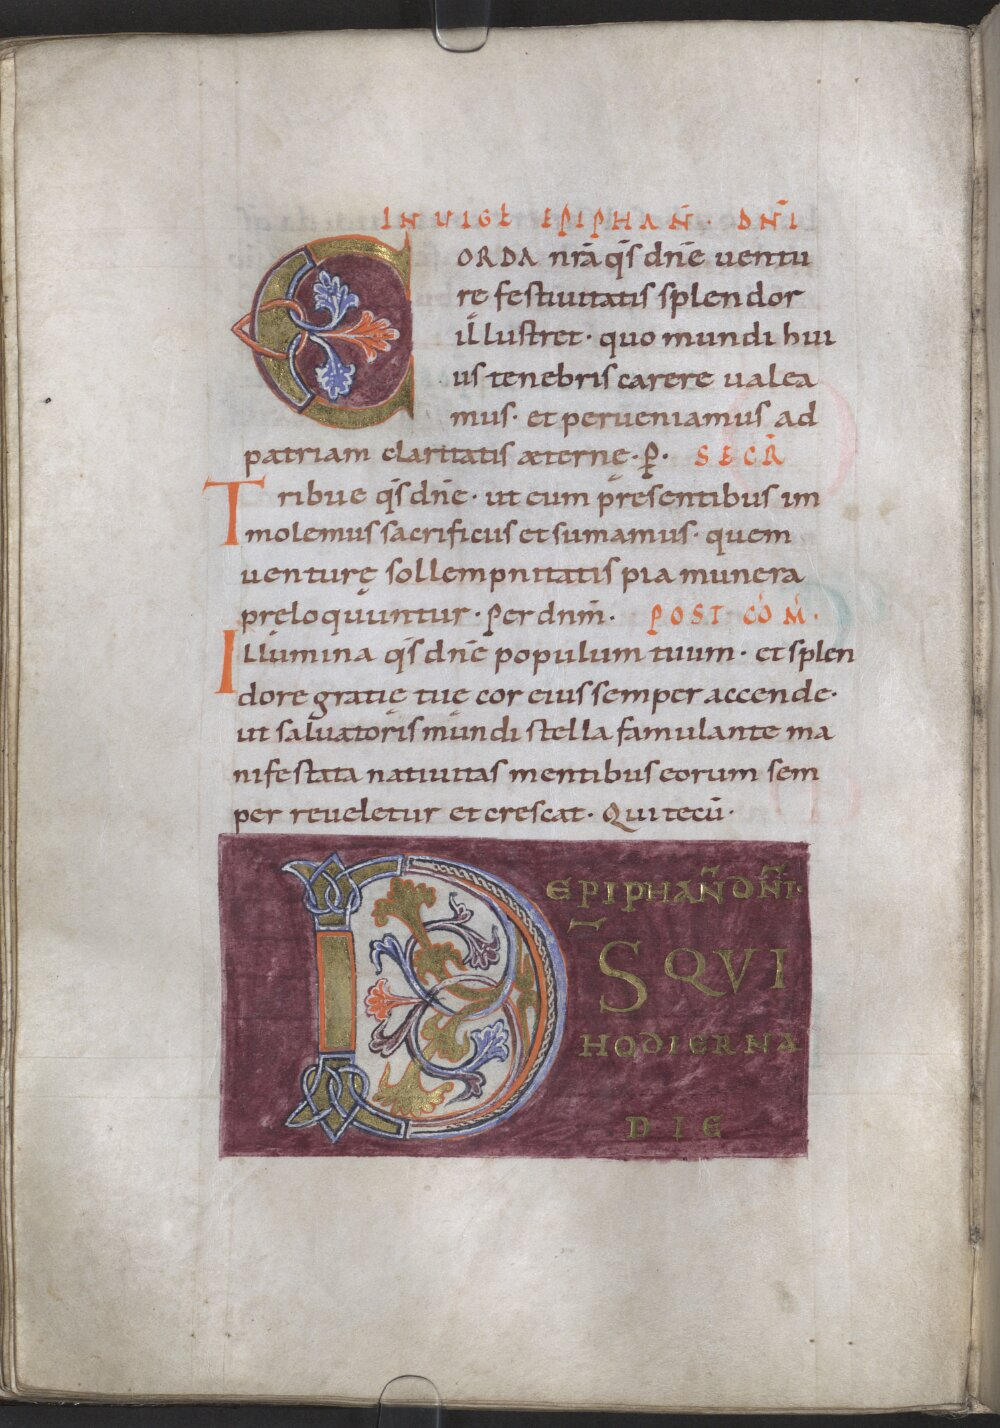 IN UIGL̄ EPIPHAN̄· DN̄I
CORDA nr̄a q̄s dn̄e uentu
re festiuitatis splendor
illustret· quo mundi hui
us tenebris carere ualea
mus· et perueniamus ad
patriam claritatis æternę· P̱· SECR̄
Tribue q̄s dn̄e· ut eum pręsentibus im
molemus sacrificiis et sumamus· quem
uenturę sollempnitatis pia munera
preloquuntur· Per dnm̄· POST CŌM̄·
Illumina q̄s dn̄e populum tuum· et splen
dore gratię tuę cor eius semper accende·
ut saluatoris mundi stella famulante ma
nifestata natiuitas mentibus eorum sem
per reueletur et crescat· Qui tecū·
EPIPHAN̄ DN̄I·
DS̄ QVI
HODIERNA
DIE